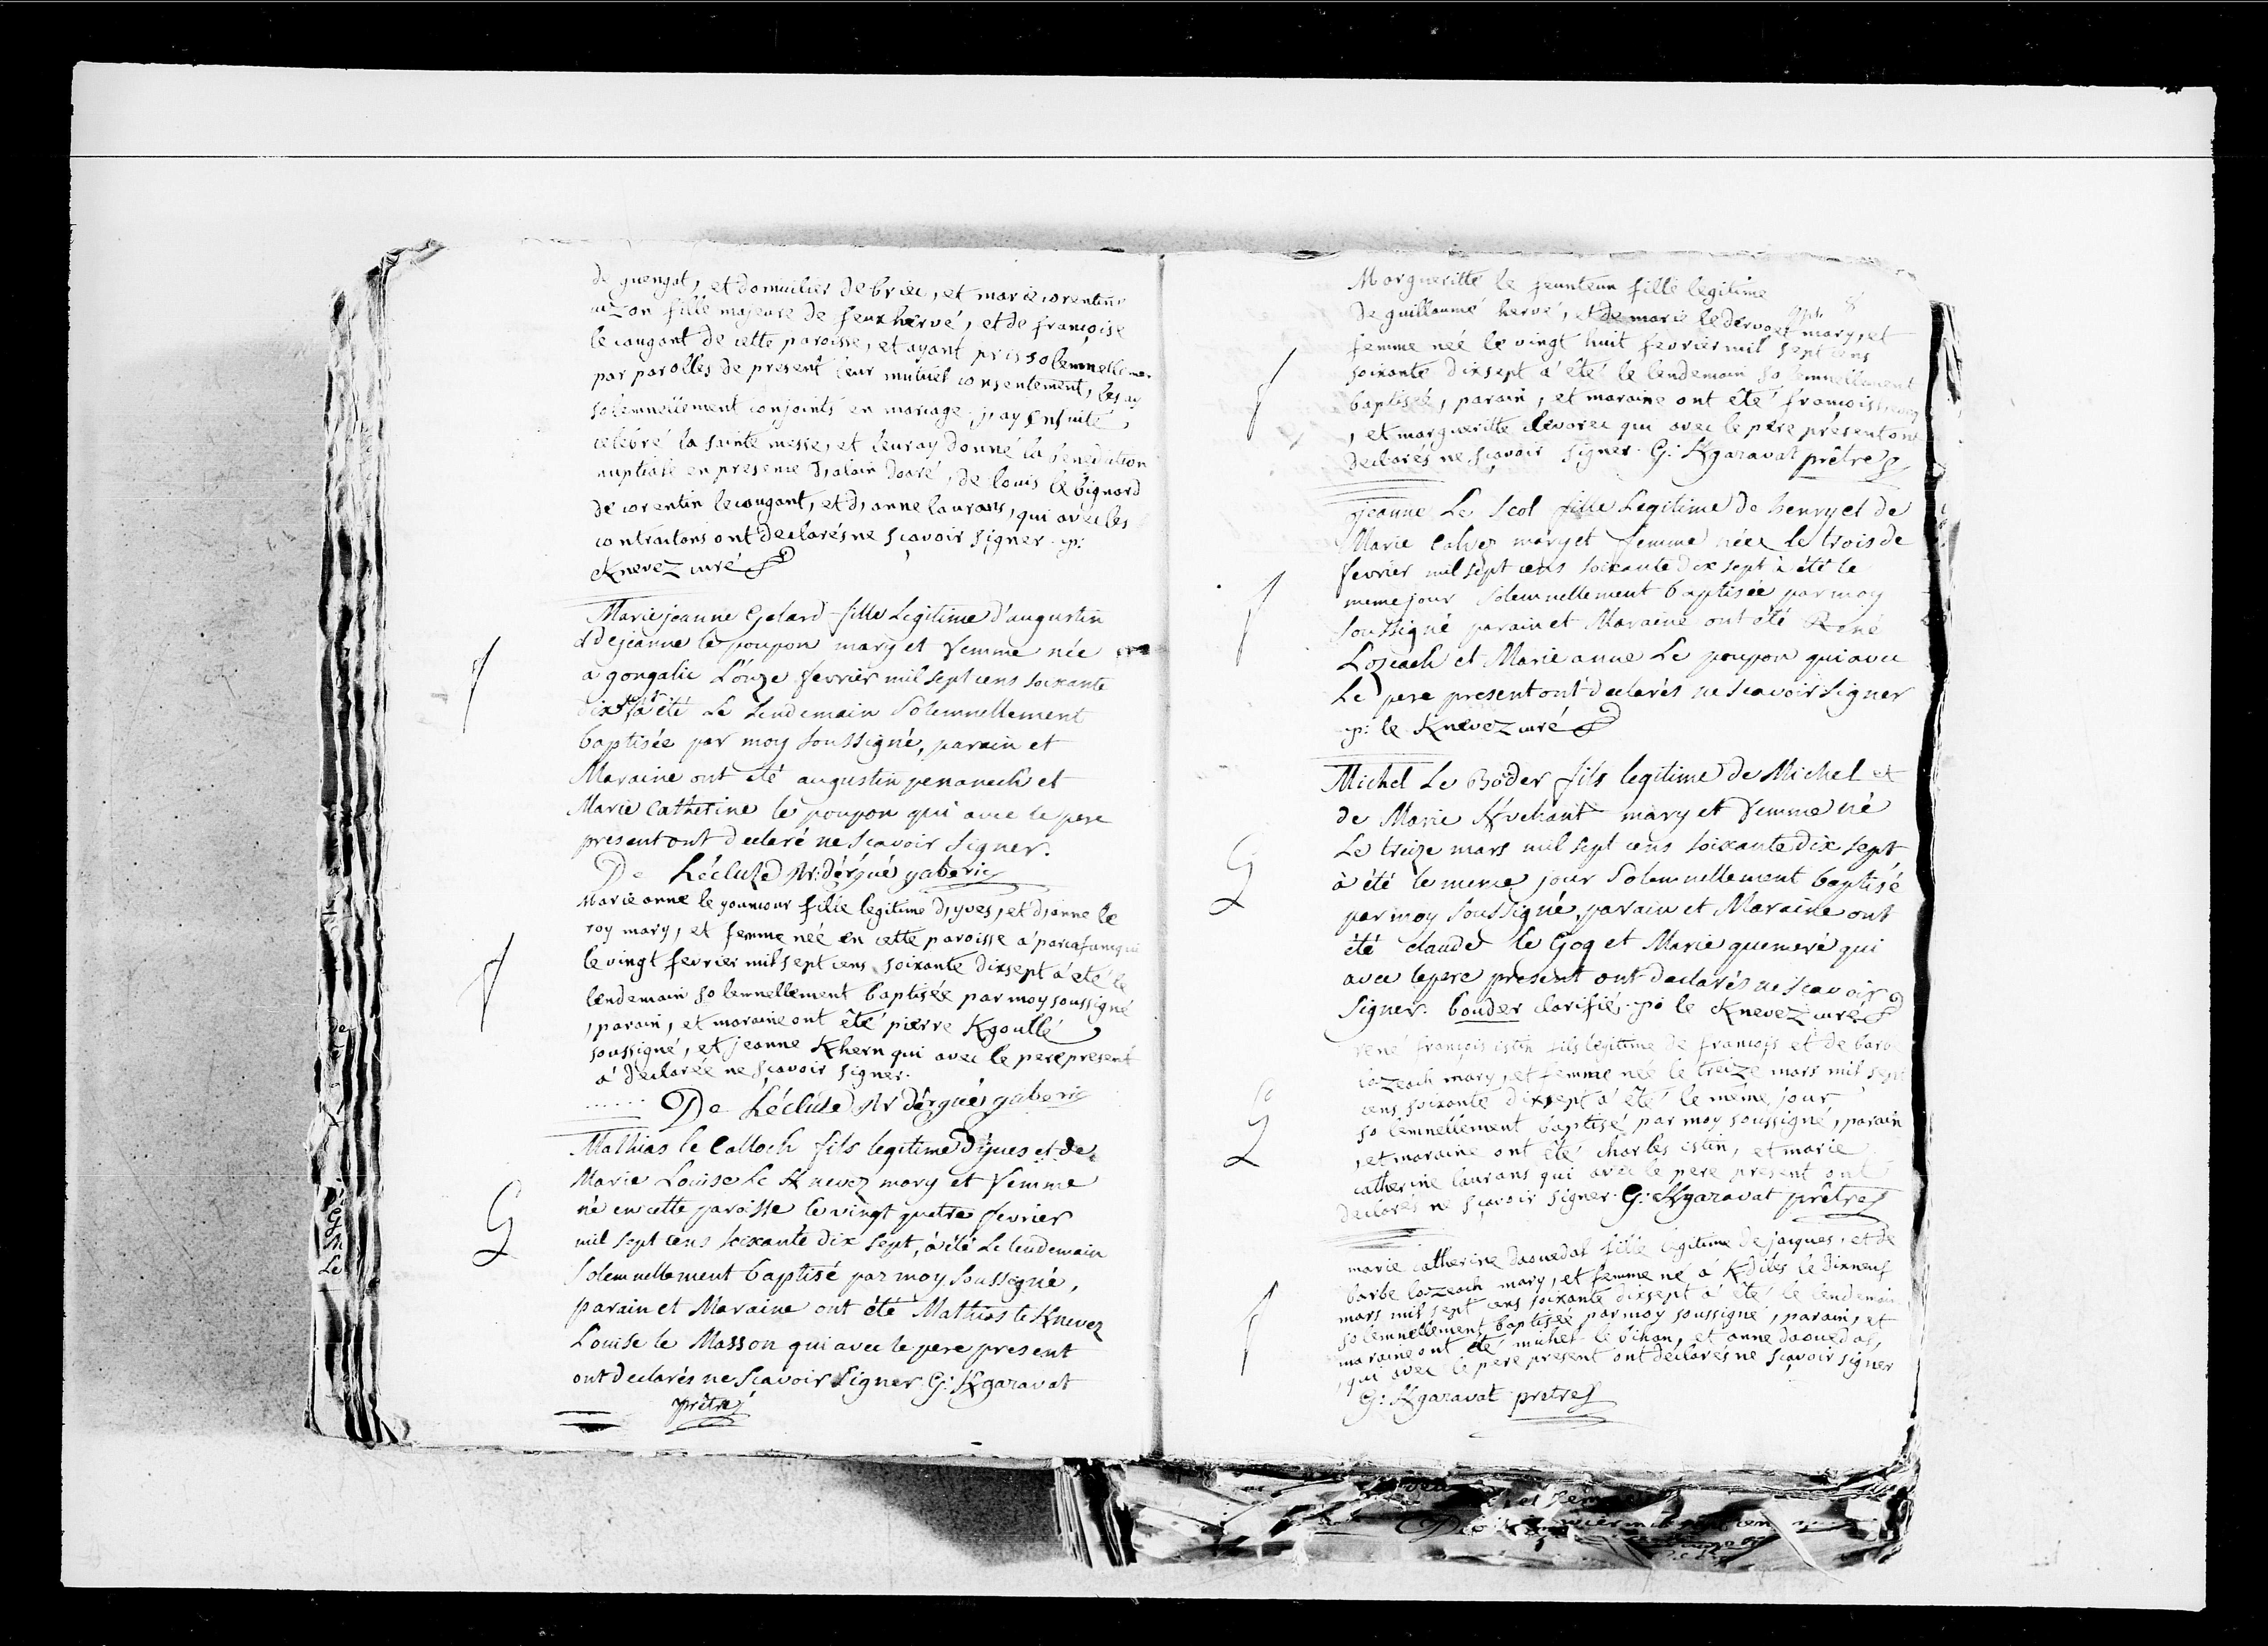 de guengat, et domicilier de briec, et marie corentine
fille majeure de feux hervé, et de françoise
le cougant de cette paroisse, et ayant pris solemnellemen
par parolles de present leur mutuel consentement, les ay
solemnellement conjoints en mariage j,ay ensuite
celebré la sainte messe, et leur ay donné la benediction
nuptiale en presence d,alain doaré, de louis le bignard
de corentin le cougant, et d,anne laurans, qui avec les
contractans ont declarés ne sçavoir signer. p:
Knevez curé
Marie jeanne Gelard fille Legitime d'augustin
et De jeanne le poupon mary et femme née
a gongalic L'onze fevrier mil sept cens soixante
dix sept a été Le Lendemain Solemnellement
baptisée par moy soussigné, parain et
Maraine ont été augustin penanech et
Marie Catherine le poupon qui avec le pere
present ont declaré ne scavoir signer.
De Lécluse Nr: dérgué gaberic
Marie anne le youncour fille legitime d,yves, et d,anne le
roy mary, et femme neé en cette paroisse a
le vingt fevrier mil sept cens soixante dixsept a été le
lendemain solemnellement baptisée par moy soussigné
, parain, et maraine ont été pierre Kgoullé
soussigné, et jeanne Khern qui avec le pere present
a declarée ne sçavoir signer.
...... De Lécluse Nr dérgué gaberic
Mathias le Calloch fils legitime d'yves et de
Marie Louise Le Knevez mary et femme
né en cette paroisse le vingt quatre fevrier
mil sept cens soixante dix sept, a été Le lendemain
solemnellement baptisé par moy soussigné,
parain et Maraine ont été Mathias le Knevez
Louise le Masson qui avec le pere present
ont declarés ne scavoir signer. G: Kgaravat
prêtre
8
Margueritte le feunteun fille legitime
de guillaumé hervé, et de marie le dervoet mary, et
femme neé le vingt huit fevrier mil sept cens
soixante dixsept a été le lendemain solemnellement
baptisée, parain, et maraine ont été francois
, et margueritte qui avec le pere présent ont
declarés ne sçavoir signer. G: Kgaravat prêtre
jeanne Le Scol fille Legitime de henry et de
Marie Calvez mary et femme neé le trois de
fevrier mil sept cens soixante dix sept à été le
meme jour solemnellement baptisée par moy
soussigné parain et Maraine ont été René
Lozeach et Marie anne Le poupon qui avec
Le pere present ont declarés ne scavoir signer
p: le Knevez curé
Michel Le Boder fils legitime de Michel et
de Marie Kvehant mary et femme né
Le treize mars mil sept cens soixante dix sept
à été le meme jour solemnellement baptisé
par moy soussigné, parain et Maraine ont
été claude le Goq et Marie quemeré qui
avec le pere present ont declarés ne sçavoir
signer. bouder clarifié. p: le Knevez curé
rené françois istin fils legitime de françois et de barbe
lozeach mary, et femme neé le treize mars mil sept
cens soixante dixsept a été le même jour
solemnellement baptisé par moy soussigné, parain
, et maraine ont été charles istin, et marie
catherine laurans qui avec le pere present ont
declarés ne sçavoir signer. G: Kgaravat prêtre
marie catherine daouedal fille legitime de jacques, et de
barbe lozeach mary, et femme né à Kdiles le dixneuf
mars mil sept cens soixante dixsept a été le lendemain
solemnellement baptisée par moy soussigné, parain, et
maraine ont été michel le bihan, et anne daouedal,
, qui avec le pere present ont déclarés ne sçavoir signer
G: Kgaravat prêtre